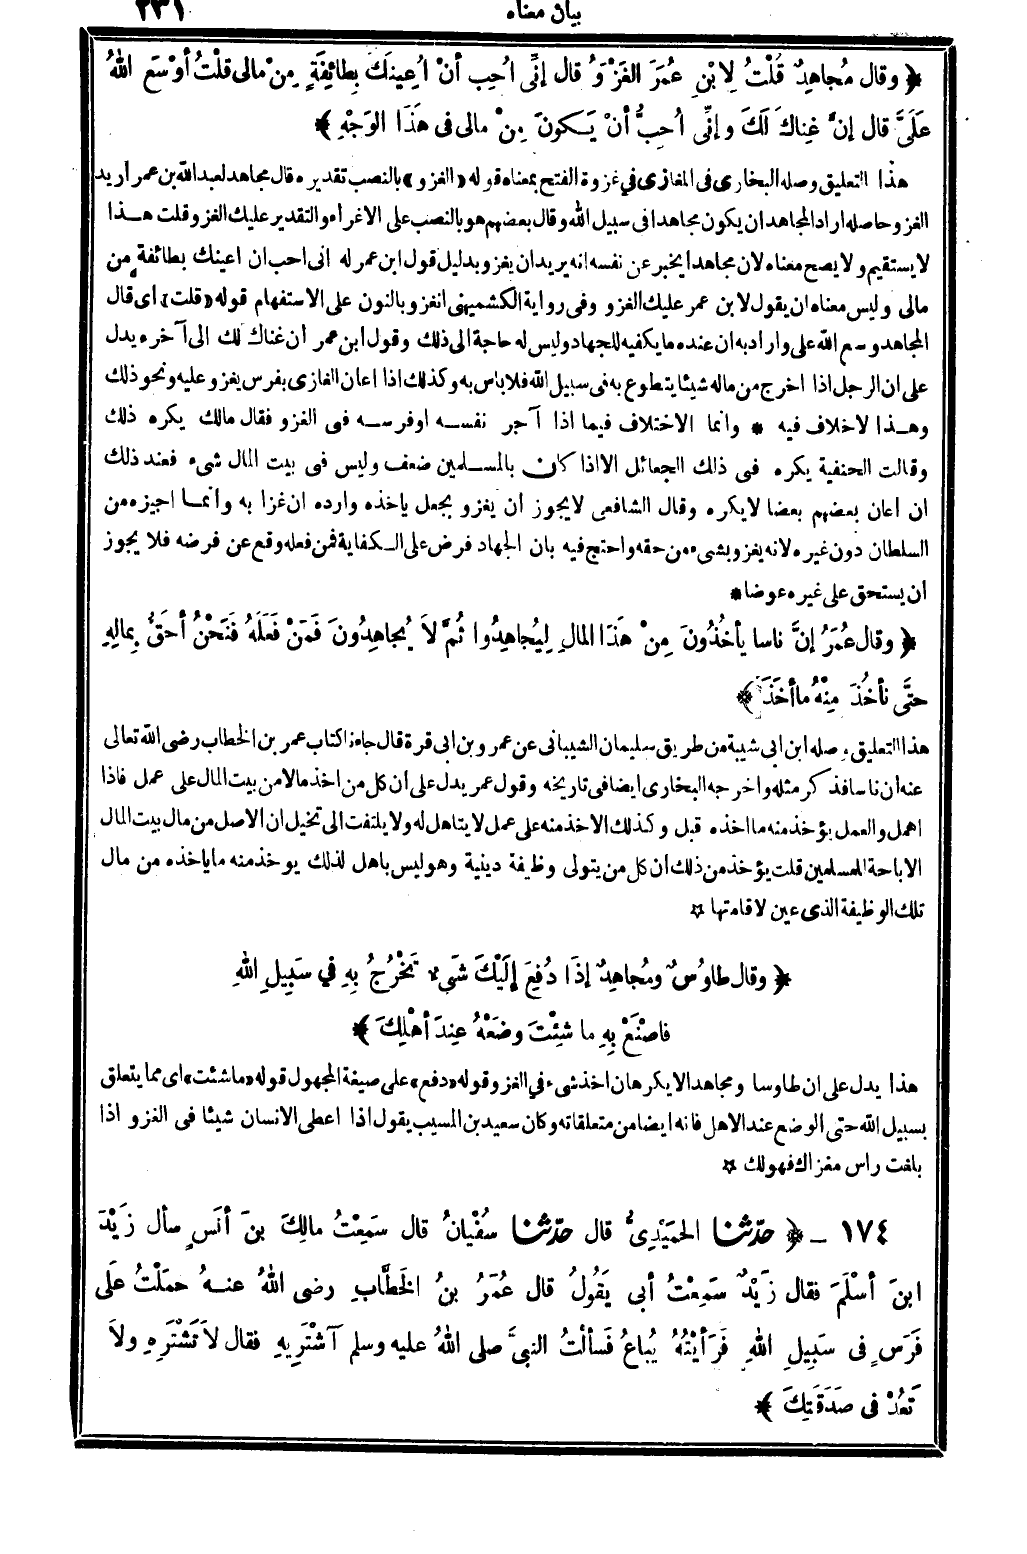 بيان معناه
٢٣١
﴿ وقال مُجاهِدٌ قُلْتُ لِابْنِ عُمَرَ الغَزْوُ قال إنِّى أُحِب أنْ أُعِينَكَ بِطائِفَةٍ مِنْ مالى قلْتُ أوْسَع اللهُ
عَلَىَّ قال إنَّ غِناكَ لَكَ وإنِّى أُحِبُّ أنْ يَكونَ مِنْ مالى فى هَذَا الوَجْهِ ﴾
هذا التعليق وصله البخارى فى المغازى في غزوة الفتح بمعناه قوله «الغزو» بالنصب تقديره قال مجاهد لعبد الله بن عمر أريد
الغزو حاصله اراد المجاهد ان يكون مجاهدا فى سبيل الله وقال بعضهم هو بالنصب على الاغراء والتقدير عليك الغزو قلت هذا
لا يستقيم ولا يصح معناه لان مجاهدا يخبر عن نفسه انه يريد ان يغزو بدليل قول ابن عمر له انى احب ان اعينك بطائفة من
مالى وليس معناه ان يقول لابن عمر عليك الغزو وفى رواية الكشميهنى انغزو بالنون على الاستفهام قوله «قلت» اى قال
المجاهد وسع الله على واراد به ان عنده ما يكفيه للجهاد وليس له حاجة الى ذلك وقول ابن عمر أن غناك لك الى آخره يدل
على ان الرجل اذا اخرج من ماله شيئا يتطوع به فى سبيل الله فلا باس به وكذلك اذا اعان الغازى بفرس يغزو عليه ونحو ذلك
وهذا لاخلاف فيه * وانما الاختلاف فيما اذا آجر نفسه اوفرسه فى الغزو فقال مالك يكره ذلك
وقالت الحنفية يكره فى ذلك الجعائل الااذا كان بالمسلمين ضعف وليس فى بيت المال شىء فعند ذلك
ان اعان بعضهم بعضا لايكره وقال الشافعى لايجوز أن يغزو بجعل ياخذه وارده ان غزا به وانما اجيزه من
السلطان دون غيره لانه يغزو بشىء من حقه واحتج فيه بان الجهاد فرض على الكفاية فمن فعله وقع عن فرضه فلا يجوز
ان يستحق على غيره عوضا*
﴿ وقال عُمَرُ إنَّ ناسا يأخُذُونَ مِنْ هَذَا المالِ لِيُجاهِدُوا ثُمَّ لاَ يُجاهِدُونَ فَمَنْ فَعَلَهُ فَنَحْنُ أحَقُّ بِمالِهِ
حتَّى نأخُذَ مِنْهُ ماأخَذَ ﴾
هذا التعليق وصله ابن ابى شيبة من طريق سليمان الشيبانى عن عمرو بن ابى قرة قال جاءنا كتاب عمر بن الخطاب رضى الله تعالى
عنه ان ناسا فذكر مثله واخرجه البخارى ايضا فى تاريخه وقول عمر يدل على أن كل من اخذ مالا من بيت المال على عمل فاذا
اهمل والعمل يؤخذ منه ما اخذه قبل وكذلك الاخذ منه على عمل لا يتاهل له ولا يلتفت الى تخيل ان الاصل من مال بيت المال
الاباحة للمسلمين قلت يؤخذ من ذلك ان كل من يتولى وظيفة دينية وهو ليس باهل لذلك يوخذ منه ماياخذه من مال
تلك الوظيفة الذى عين لاقامتها ☆
﴿ وقال طاوُسٌ ومُجاهِدٌ إذَا دُفِعَ إلَيْكَ شَىءٌ تَخْرُجُ بِهِ في سَبِيلِ اللهِ
فاصْنَعْ بِهِ ما شِئْتَ وضَعْهُ عِندَ أهْلِكَ ﴾
هذا يدل على ان طاوسا ومجاهدا لا يكرهان اخذ شىء في الغزو قوله «دفع» على صيغة المجهول قوله «ماشئت» اى مما يتعلق
بسبيل الله حتى الوضع عند الاهل فانه ايضا من متعلقاته وكان سعيد بن المسيب يقول اذا اعطى الانسان شيئا فى الغزو اذا
بلغت راس مغزاك فهو لك ☆
١٧٤ ــ ﴿ حدّثنا الحُمَيْدِىُّ قال حدّثنا سُفْيانُ قال سَمِعْتُ مالِكَ بنَ أنَسٍ سأل زَيْدَ
ابنَ أسْلَمَ فقال زَيْدٌ سَمِعْتُ أبى يَقُولُ قال عُمَرُ بنُ الخَطَّابِ رضى اللهُ عنهُ حمَلْتُ عَلَى
فَرَسٍ فى سَبِيلِ اللهِ فَرَأيْتُهُ يُباعُ فَسألْتُ النبىَّ صلى اللهُ عليه وسلم آشْتَرِيهِ فقال لاَ تَشْتَرِهِ ولاَ
تَعُدْ فى صَدَقَتِكَ ﴾